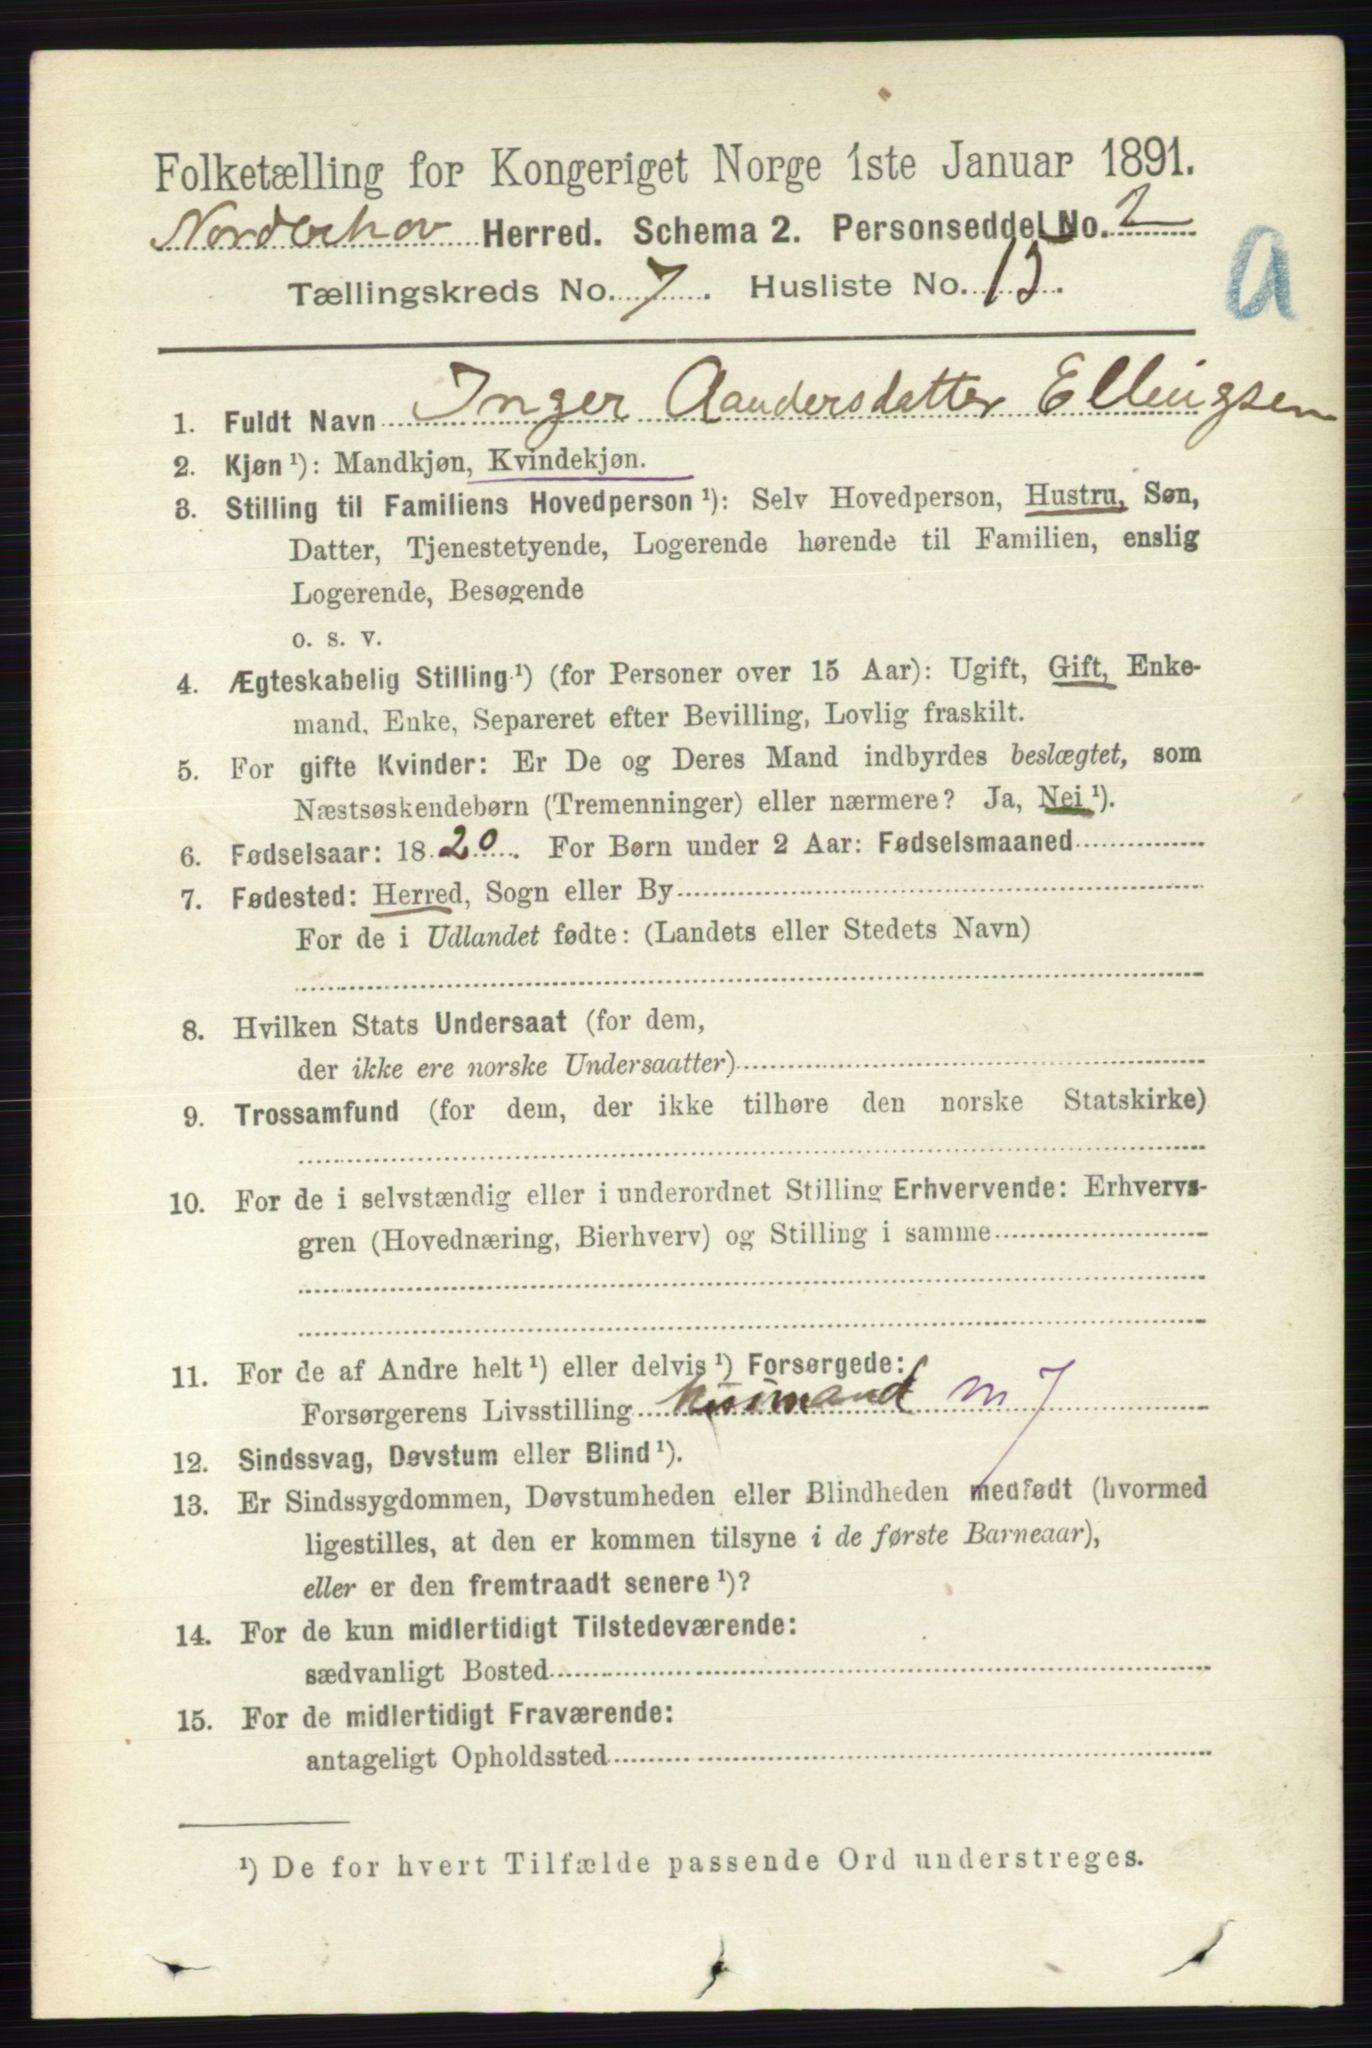 Folketælling for Kongeriget Norge 1ste Januar 1891.
Norderhov Herred. Schema 2. Personseddel No. 2
a
Tællingskreds No. 7. Husliste No. 15.
1. Fuldt Navn Inger Aandersdatter Ellingsen
2. Kjøn ¹): Mandkjøn, Kvindekjøn.
3. Stilling til Familiens Hovedperson ¹): Selv Hovedperson, Hustru, Søn,
Datter, Tjenestetyende, Logerende hørende til Familien, enslig
Logerende, Besøgende
o. s. v.
4. Ægteskabelig Stilling ¹) (for Personer over 15 Aar): Ugift, Gift, Enke-
mand, Enke, Separeret efter Bevilling, Lovlig fraskilt.
5. For gifte Kvinder: Er De og Deres Mand indbyrdes beslægtet, som
Næstsøskendebørn (Tremenninger) eller nærmere? Ja, Nei ¹).
6. Fødselsaar: 1820. For Børn under 2 Aar: Fødselsmaaned
7. Fødested: Herred, Sogn eller By
For de i Udlandet fødte: (Landets eller Stedets Navn)
8. Hvilken Stats Undersaat (for dem,
der ikke ere norske Undersaatter)
9. Trossamfund (for dem, der ikke tilhøre den norske Statskirke)
10. For de i selvstændig eller i underordnet Stilling Erhvervende: Erhvervs-
gren (Hovednæring, Bierhverv) og Stilling i samme
11. For de af Andre helt ¹) eller delvis ¹) Forsørgede:
Forsørgerens Livsstilling Husmand m 7
12. Sindssvag, Døvstum eller Blind ¹).
13. Er Sindssygdommen, Døvstumheden eller Blindheden medfødt (hvormed
ligestilles, at den er kommen tilsyne i de første Barneaar),
eller er den fremtraadt senere ¹)?
14. For de kun midlertidigt Tilstedeværende:
sædvanligt Bosted
15. For de midlertidigt Fraværende:
antageligt Opholdssted
¹) De for hvert Tilfælde passende Ord understreges.